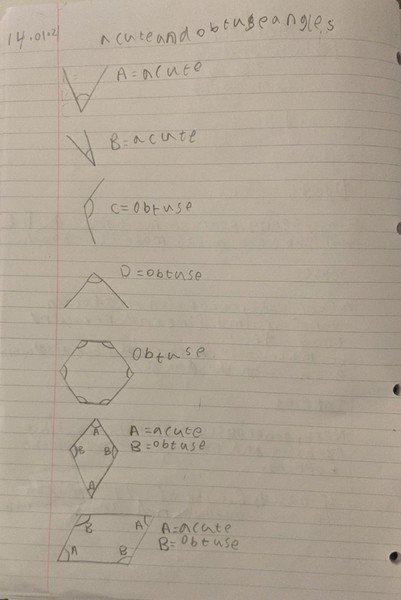 14.01.2
acute and obtuse angles
A = acute
B = acute
C = obtuse
D = obtuse
Obtuse
A
B B
A
A = acute
B = obtuse
B A
A B
A = acute
B = Obtuse